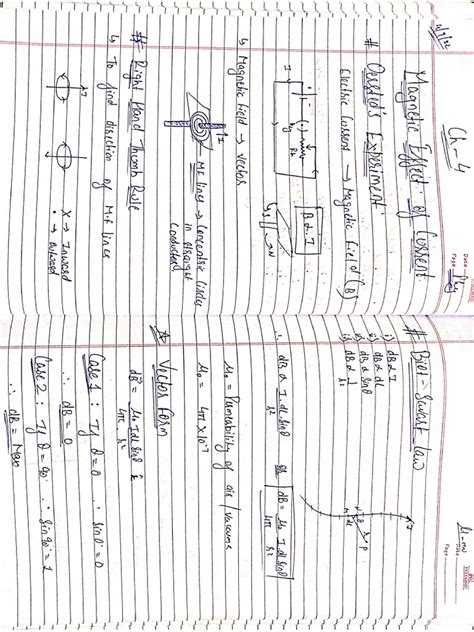 Ch - 4
Magnetic Effect of Current
# Oersted's Experiment
Electric Current → Magnetic Field (B)
I
Rh
B ∝ I
S N
↳ Magnetic field → vector
I
M.F lines → Concentric Circles
in straight
Conductor
# Right Hand Thumb Rule
↳ To find direction of M.f lines
X → Inward
• → outward
# Biot - Savart law
i) dB ∝ I
ii) dB ∝ dl
iii) dB ∝ sinθ
iv) dB ∝ 1/r²
∴ dB ∝ I dl sinθ / r² or dB = μ₀/4π I dl sinθ / r²
μ₀ = Permeability of air / vacuum
μ₀ = 4π × 10⁻⁷
Vector form
dB = μ₀/4π I dl sinθ / r² r̂
Case 1 : If θ = 0 ∴ sin 0 = 0
∴ dB = 0
Case 2 : If θ = 90 ∴ sin 90 = 1
∴ dB = Max